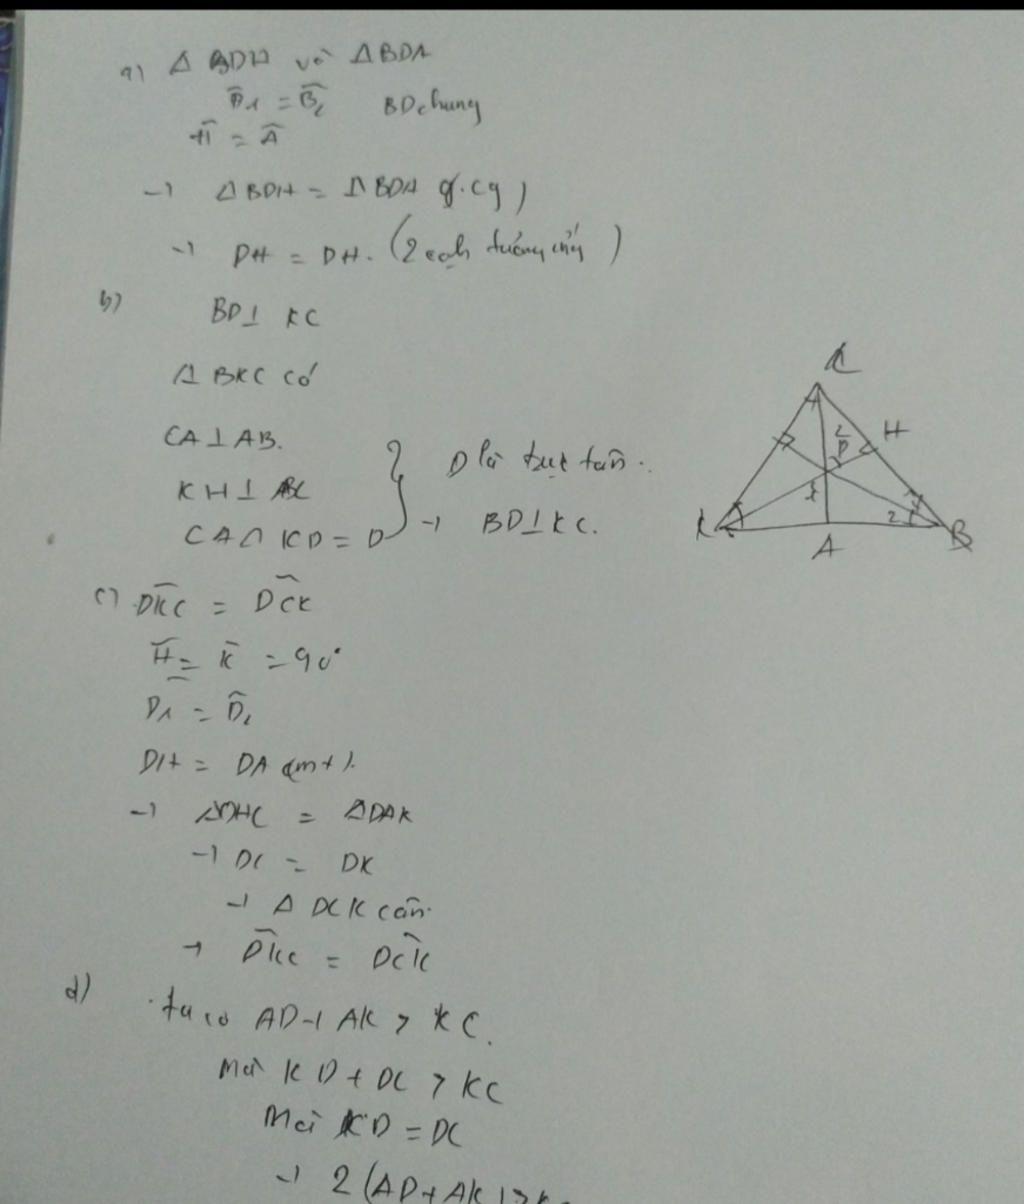 a) Δ BDH và Δ BDA
B̂1 = B̂2 BD chung
Ĥ = Â
→ Δ BDH = Δ BDA (g.cg)
→ DH = DH. (2 cạh tương ứng)
b) BD ⊥ KC
Δ BKC có
CA ⊥ AB.
KH ⊥ BC
CA ∩ KD = D
} D là trực tâm.
→ BD ⊥ KC.
C
H
2
D
1
K
A
2
1
B
c) DKC = DCK
Ĥ = K̂ = 90°
D̂1 = D̂2
DH = DA (mt).
→ ΔDHC = ΔDAK
→ DC = DK
→ Δ DCK cân.
→ DKC = DCK
d) ta có AD + AK > KC.
Mà KD + DC > KC
Mà KD = DC
→ 2 (AD + AK) > K